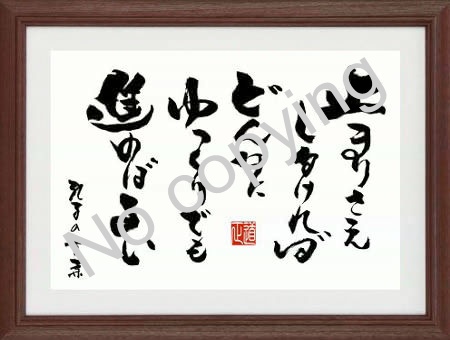 止まりさえ
しなければ
どんなに
ゆっくりでも
進めば良い
孔子の言葉
No copying